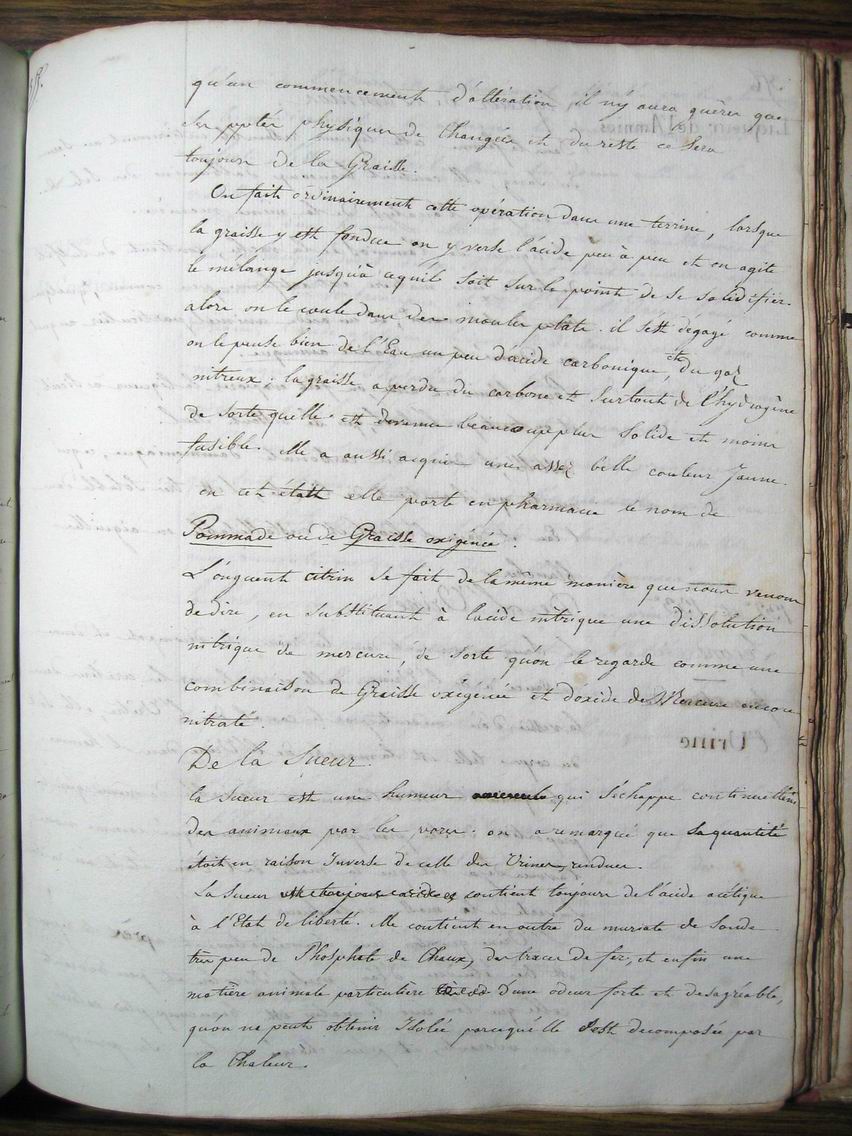 qu'un commencement d'altération, il n'y aura guères que
les pptés physiques de changées et du reste ce sera
toujours de la Graisse.
On fait ordinairement cette opération dans une terrine, lorsque
la graisse y est fondue on y verse l'acide peu à peu et on agite
le mélange jusqu'à cequ'il soit sur le point de se solidifier
alors on le coule dans des moules plats. il s'est dégagé comme
on le pense bien de l'Eau un peu d'acide carbonique, et du gaz
nitreux; la graisse a perdu du carbone et surtout de l'hydrogène
de sorte quelle est devenue beaucoup plus solide et moins
fusible. elle a aussi acquis une assez belle couleur Jaune.
en cet état elle porte en pharmacie le nom de
Pommade ou de Graisse oxigénée.
L'onguent citrin se fait de la même manière que nous venons
de dire, en substituant à l'acide nitrique une dissolution
nitrique de mercure, de sorte qu'on le regarde comme une
combinaison de Graisse oxigénée et d'oxide de Mercure encore
nitraté.
De la Sueur.
la Sueur est une humeur qui s'échappe continuellem
des animaux par les pores. on a remarqué que sa quantité
était en raison Inverse de celle des Urines rendues.
La Sueur est toujours acide et contient toujours de l'acide acétique
à l'Etat de liberté. elle contient en outre du muriate de Soude
très peu de Phosphate de Chaux, des traces de fer, et enfin une
matière animale particulière d'une odeur forte et desagréable,
qu'on ne peut obtenir Isolée parcequ'elle est decomposée par
la Chaleur.